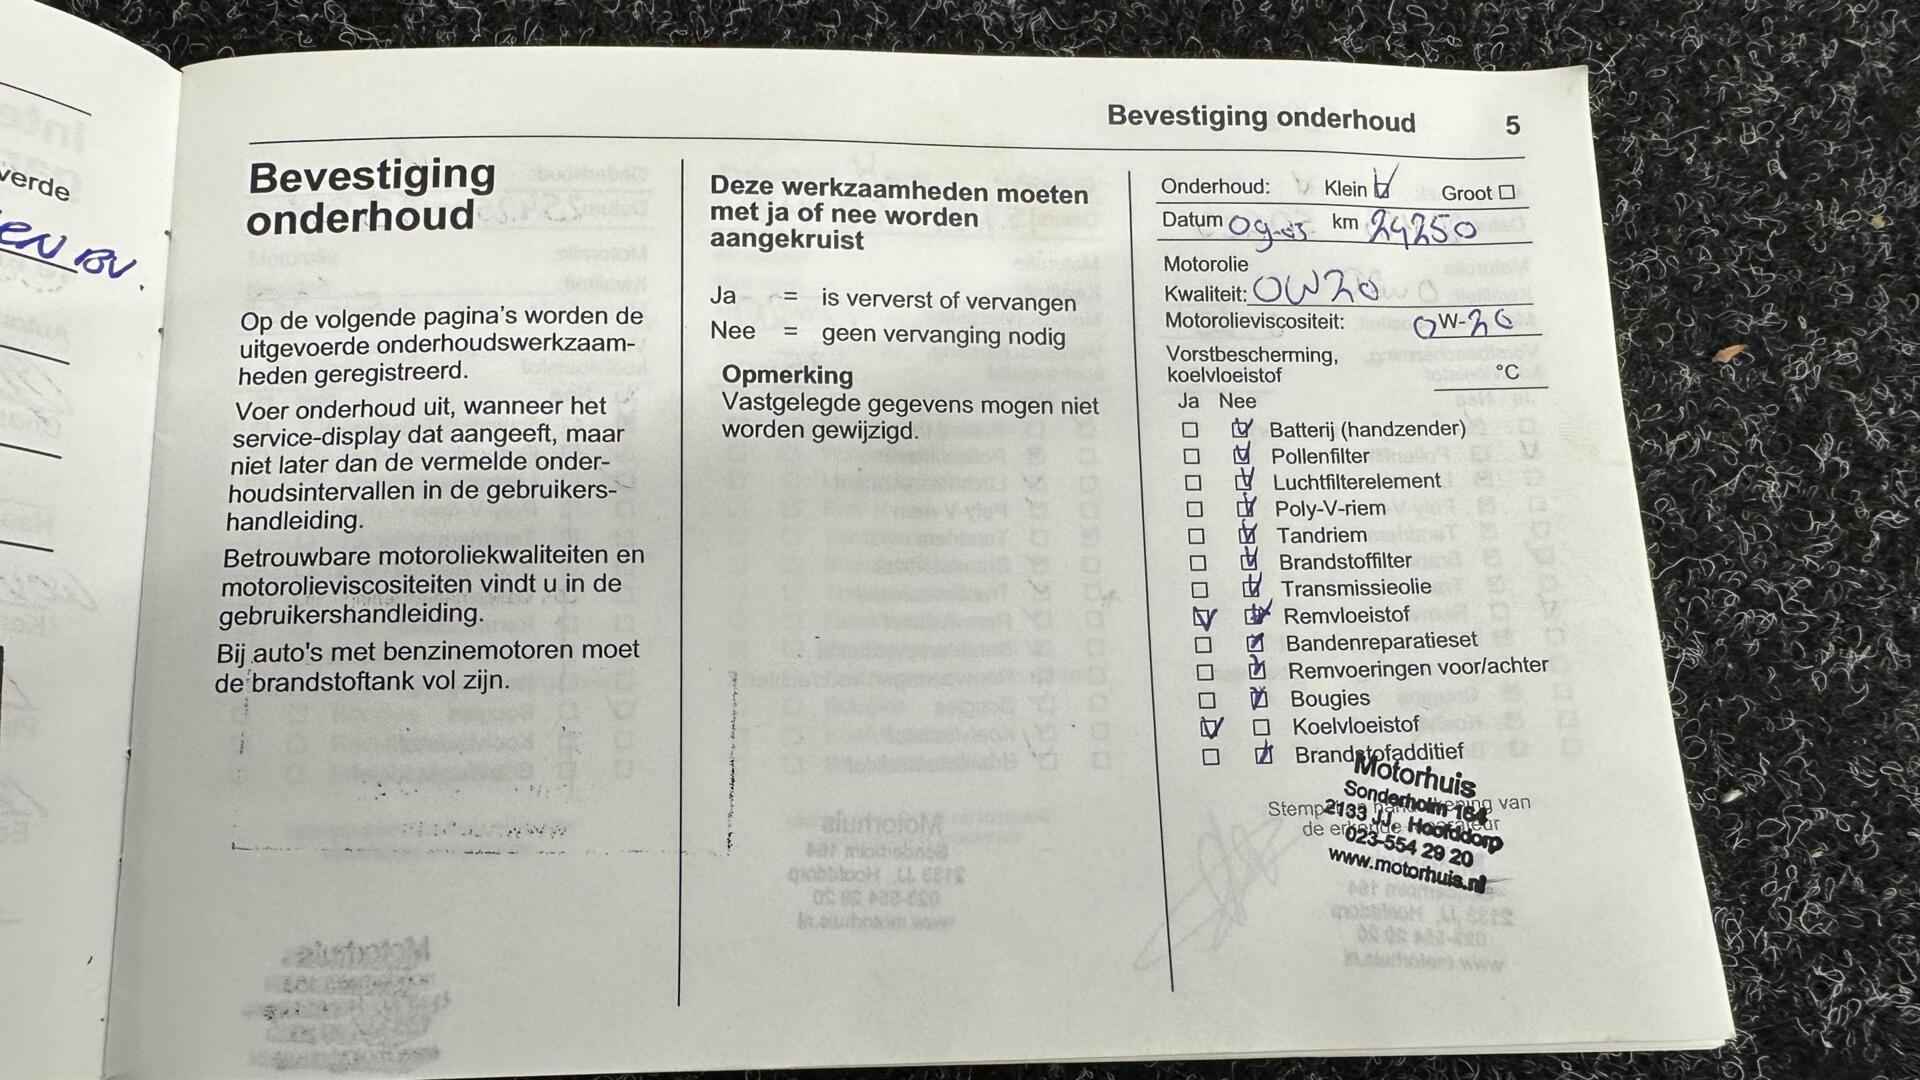 verde
EN BV.
Bevestiging onderhoud 5
Bevestiging
onderhoud
Op de volgende pagina's worden de
uitgevoerde onderhoudswerkzaam-
heden geregistreerd.
Voer onderhoud uit, wanneer het
service-display dat aangeeft, maar
niet later dan de vermelde onder-
houdsintervallen in de gebruikers-
handleiding.
Betrouwbare motoroliekwaliteiten en
motorolieviscositeiten vindt u in de
gebruikershandleiding.
Bij auto's met benzinemotoren moet
de brandstoftank vol zijn.
Deze werkzaamheden moeten
met ja of nee worden
aangekruist
Ja = is ververst of vervangen
Nee = geen vervanging nodig
Opmerking
Vastgelegde gegevens mogen niet
worden gewijzigd.
Onderhoud: Klein Groot
Datum 09-03 km 29250
Motorolie
Kwaliteit: 0W20
Motorolieviscositeit: 0W-20
Vorstbescherming,
koelvloeistof °C
Ja Nee
Batterij (handzender)
Pollenfilter
Luchtfilterelement
Poly-V-riem
Tandriem
Brandstoffilter
Transmissieolie
Remvloeistof
Bandenreparatieset
Remvoeringen voor/achter
Bougies
Koelvloeistof
Brandstofadditief
Motorhuis
Sonderholm 164
2133 JJ Hoofddorp
023-554 29 20
www.motorhuis.nl